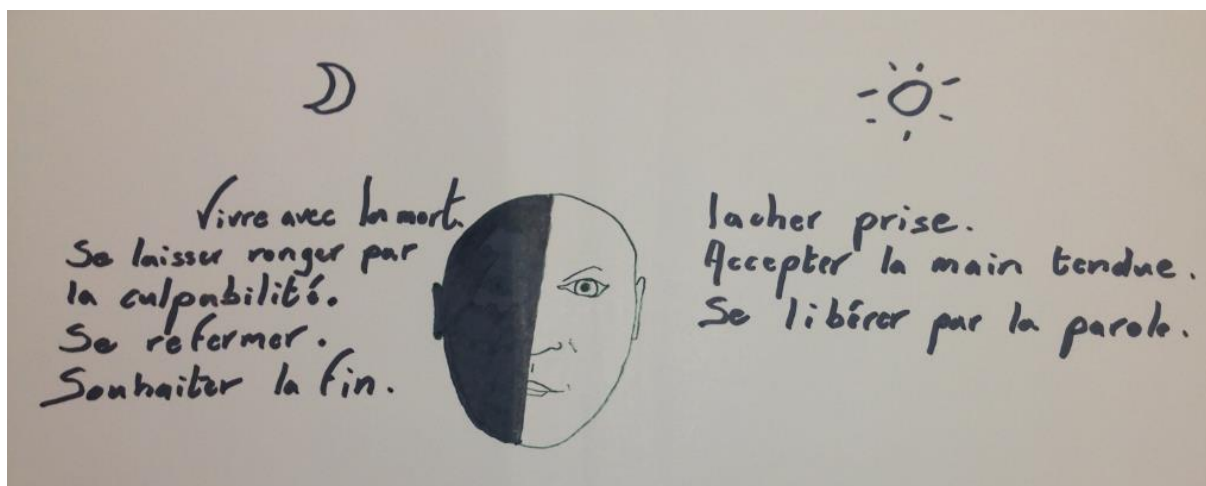 Vivre avec la mort.
Se laisser ronger par
la culpabilité.
Se refermer.
Souhaiter la fin.
lacher prise.
Accepter la main tendue.
Se libérer par la parole.